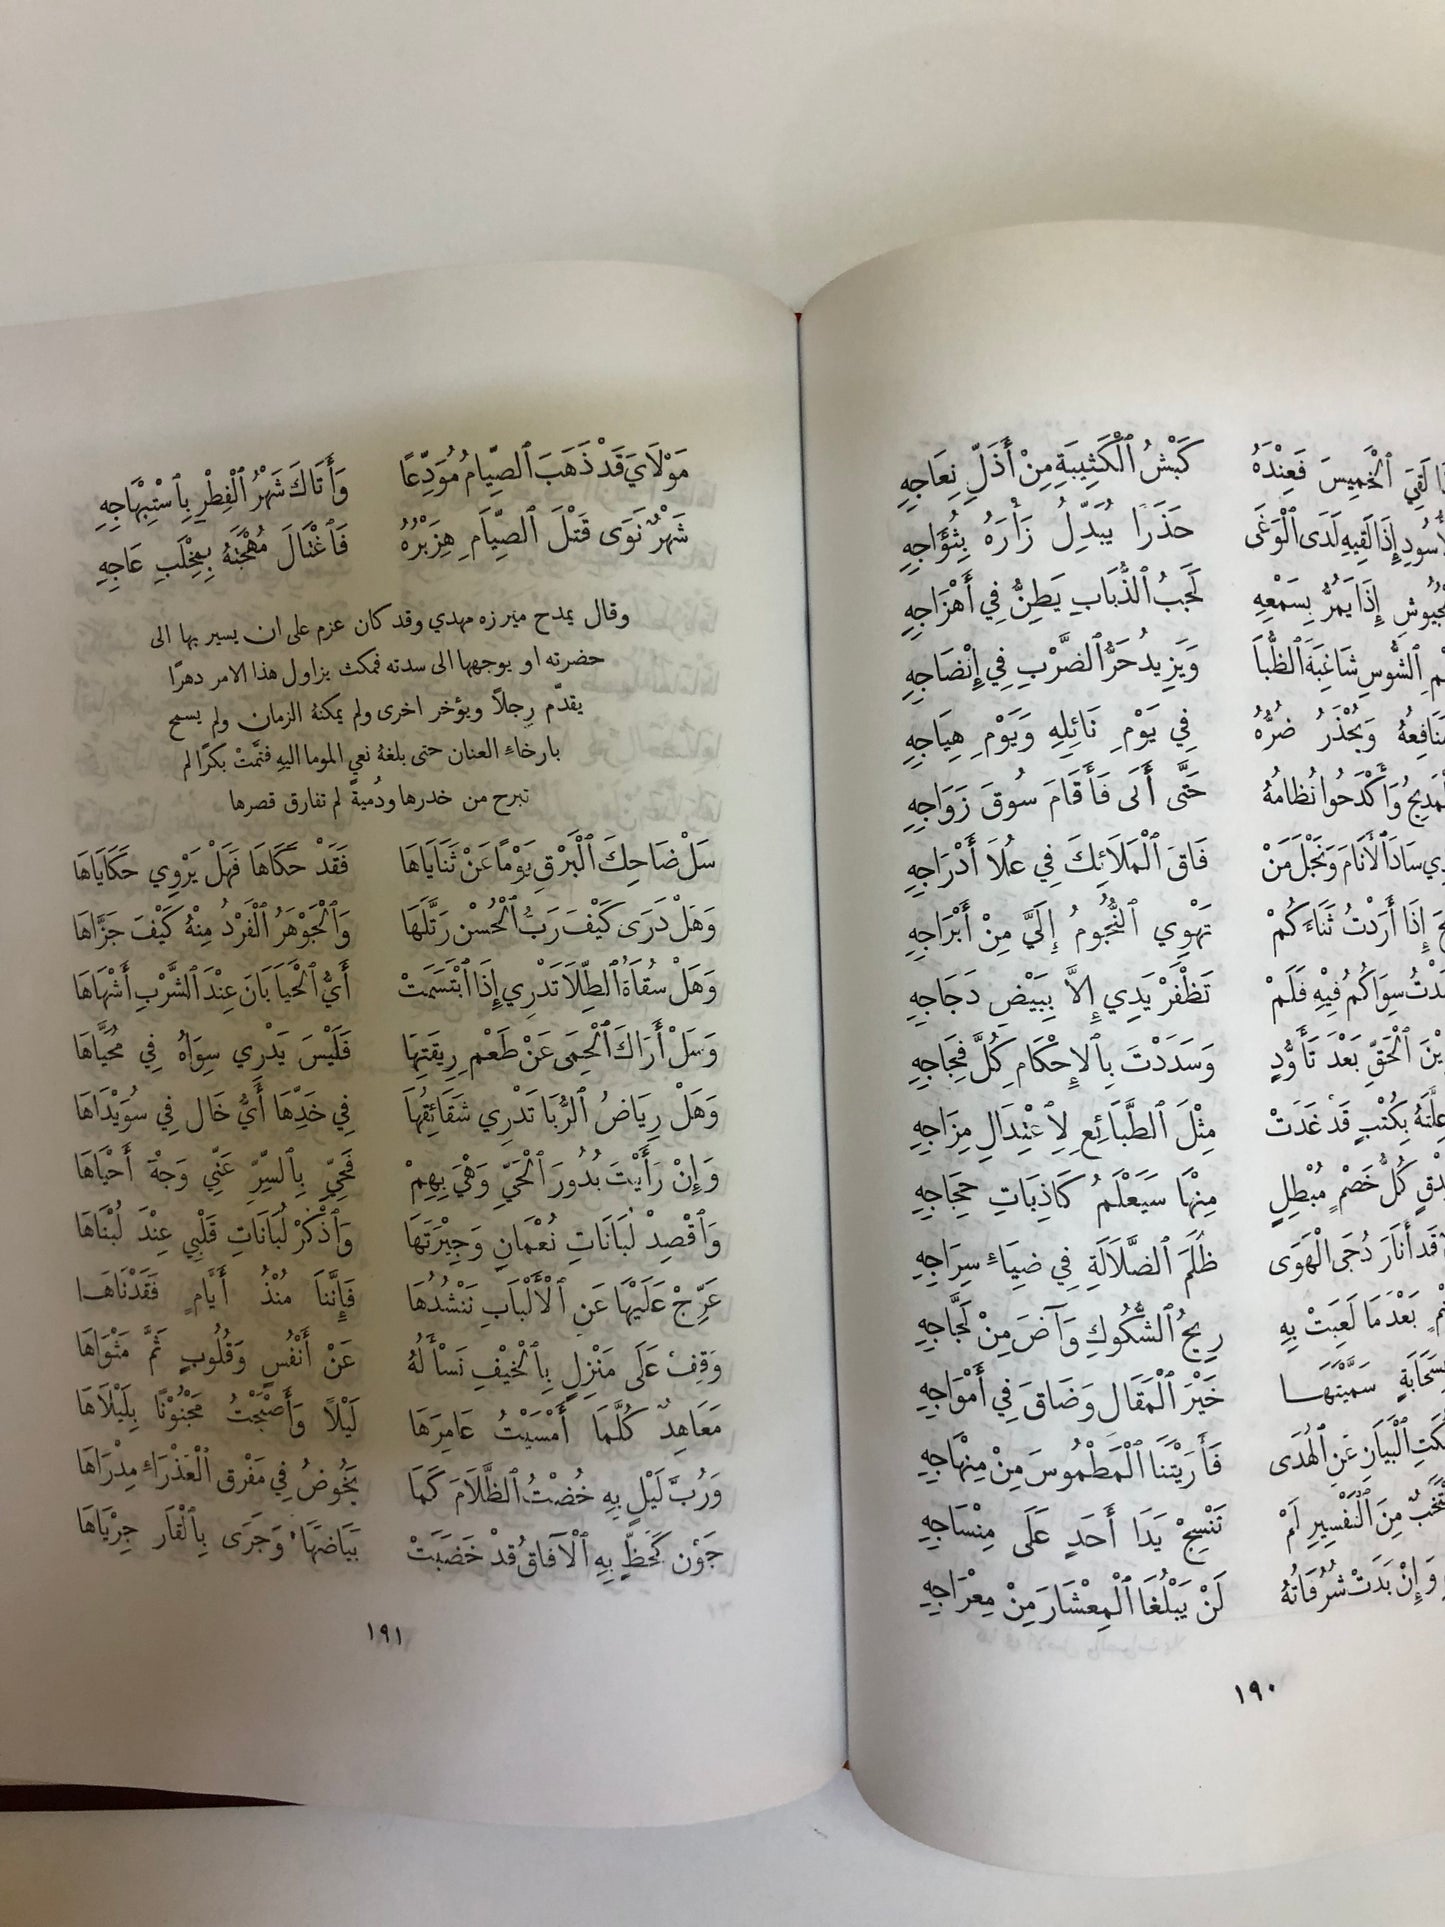 لَقِيَ ٱلْخَمِيسَ فَعِنْدَهُ كَبْشُ ٱلْكَثِيبَةِ مِنْ أَذَلِّ نِعَاجِهِ
إِذَا لَقِيهِ لَدَى ٱلْوَغَى حَذَرًا يُبَدِّلُ زَأْرَهُ بِثُؤَاجِهِ
إِذَا يَمُرُّ بِسَمْعِهِ لَجَبُ ٱلذُّبَابِ يَطِنُّ فِي أَهْزَاجِهِ
ٱلشُّوسِ شَاغِبَةَ ٱلظُّبَا وَيَزِيدُ حَرُّ ٱلضَّرْبِ فِي إِنْضَاجِهِ
وَيُحْذَرُ ضُرُّهُ فِي يَوْمِ نَائِلِهِ وَيَوْمِ هِيَاجِهِ
وَأَكْدَحُوا نُظَامُهُ حَتَّى أَتَى فَأَقَامَ سُوقَ زَوَاجِهِ
سَادَ ٱلْأَنَامَ وَنَجْلَ مَنْ فَاقَ ٱلْمَلَائِكَ فِي عُلَا أَدْرَاجِهِ
إِذَا أَرَدْتُ ثَنَاءَكُمْ تَهْوِي ٱلنُّجُومُ إِلَيَّ مِنْ أَبْرَاجِهِ
سِوَاكُمُ فِيهِ فَلَمْ تَظْفَرْ يَدِي إِلاَّ بِبَيْضِ دَجَاجِهِ
ٱلْحَقِّ بَعْدَ تَأَوُّدٍ وَسَدَدْتَ بِٱلْإِحْكَامِ كُلَّ فِجَاجِهِ
بِكُتْبٍ قَدْ غَدَتْ مِثْلَ ٱلطَّبَائِعِ لِٱعْتِدَالِ مِزَاجِهِ
كُلُّ خَصْمٍ مُبْطِلٍ مِنْهَا سَيَعْلَمُ كَاذِبَاتِ حِجَاجِهِ
قَد أَنَارَ دُجَى الْهَوَى ظُلَمَ ٱلضَّلَالَةِ فِي ضِيَاءِ سِرَاجِهِ
بَعْدَمَا لَعِبَتْ بِهِ رِيحُ ٱلشُّكُوكِ وَآضَ مِنْ لَجَّاجِهِ
سَمَّيْتَهَا خَيْرَ ٱلْمَقَالِ وَضَاقَ فِي أَمْوَاجِهِ
ٱلْبَيَانِ عَنِ ٱلْهُدَى فَأَرَيْتَنَا ٱلْمَطْمُوسَ مِنْ مِنْهَاجِهِ
مِنَ ٱلتَّفْسِيرِ لَمْ تَنْسِجْ يَدَا أَحَدٍ عَلَى مِنْسَاجِهِ
وَإِنْ بَدَتْ شُرُفَاتُهُ لَنْ يَبْلُغَا ٱلْمِعْشَارَ مِنْ مِعْرَاجِهِ
١٩٠
مَوْلَايَ قَدْ ذَهَبَ ٱلصِّيَامُ مُوَدِّعًا وَأَتَاكَ شَهْرُ ٱلْفِطْرِ بِٱسْتِبْهَاجِهِ
شَهْرٌ نَوَى قَتْلَ ٱلصِّيَامِ هِزَبْرُهُ فَٱغْتَالَ مُهْجَتَهُ بِمِخْلَبِ عَاجِهِ
وقال يمدح ميرزه مهدي وقد كان عزم على ان يسير بها الى
حضرته او يوجهها الى سدته فمكث يزاول هذا الامر دهرًا
يقدّم رِجلاً ويؤخر اخرى ولم يمكنهُ الزمان ولم يسمح
بارخاء العنان حتى بلغهُ نعي الموما اليهِ فتمَّتْ بكرًا لم
تبرح من خدرها ودُميةً لم تفارق قصرها
سَلْ ضَاحِكَ ٱلْبَرْقِ يَوْمًا عَنْ ثَنَايَاهَا فَقَدْ حَكَاهَا فَهَلْ يَرْوِي حَكَايَاهَا
وَهَلْ دَرَى كَيْفَ رَبُّ ٱلْحُسْنِ رَتَّلَهَا وَٱلْجَوْهَرُ ٱلْفَرْدُ مِنْهُ كَيْفَ جَزَّاهَا
وَهَلْ سُقَاةُ ٱلطِّلَا تَدْرِي إِذَا ٱبْتَسَمَتْ أَيُّ ٱلْحَيَا بَانَ عِنْدَ ٱلشَّرْبِ أَشْهَاهَا
وَسَلْ أَرَاكَ ٱلْحِمَى عَنْ طَعْمِ رِيقَتِهَا فَلَيْسَ يَدْرِي سِوَاهُ فِي مُحَيَّاهَا
وَهَلْ رِيَاضُ ٱلرُّبَا تَدْرِي شَقَائِقُهَا فِي خَدِّهَا أَيُّ خَالٍ فِي سُوَيْدَاهَا
وَإِنْ رَأَيْتَ بُدُورَ ٱلْحَيِّ وَهْيَ بِهِمْ فَحَيِّ بِٱلسِّرِّ عَنِّي وَجْهَ أَحْيَاهَا
وَٱقْصِدْ لُبَانَاتِ نُعْمَانٍ وَجِيْرَتَهَا وَٱذْكُرْ لُبَانَاتِ قَلْبِي عِنْدَ لُبْنَاهَا
عَرِّجْ عَلَيْهَا عَنِ ٱلْأَلْبَابِ نَنْشُدُهَا فَإِنَّنَا مُنْذُ أَيَّامٍ فَقَدْنَاهَا
وَقِفْ عَلَى مَنْزِلٍ بِٱلْخَيْفِ نَسْأَلُهُ عَنْ أَنْفُسٍ وَقُلُوبٍ ثَمَّ مَثْوَاهَا
مَعَاهِدٌ كُلَّمَا أَمْسَيْتُ عَامِرَهَا لَيْلًا وَأَصْبَحْتُ مَجْنُوْنًا بِلَيْلَاهَا
وَرُبَّ لَيْلٍ بِهِ خُضْتُ ٱلظَّلَامَ كَمَا يَخُوضُ فِي مَفْرِقِ ٱلْعَذْرَاءِ مِدْرَاهَا
جَوْن كَحَظٍّ بِهِ ٱلْآفَاقُ قَدْ خَضَبَتْ بَيَاضَهَا وَجَرَى بِٱلْقَارِ جِرْيَاهَا
١٩١